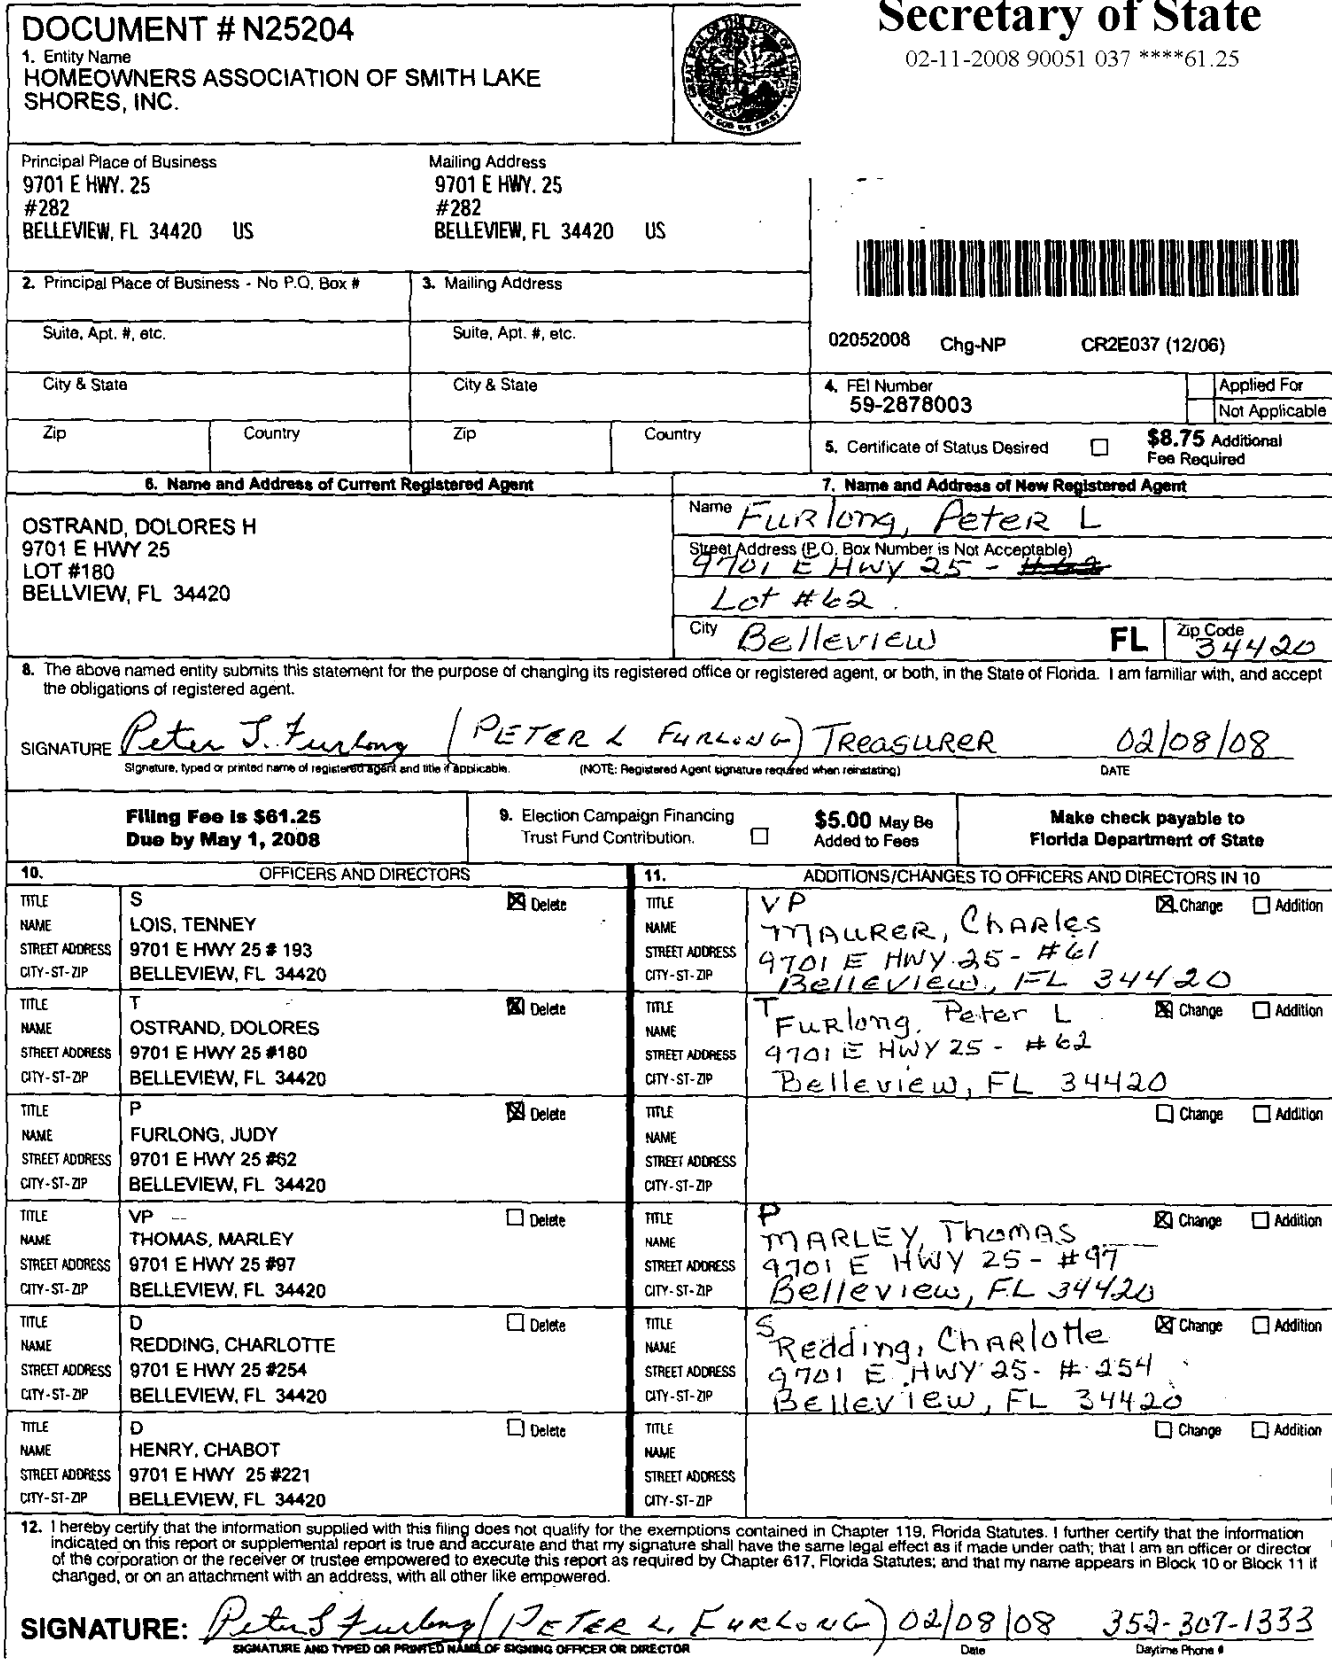 DOCUMENT # N25204
Secretary of State
02-11-2008 90051 037 ****61.25
1. Entity Name
HOMEOWNERS ASSOCIATION OF SMITH LAKE
SHORES, INC.
Principal Place of Business
9701 E HWY. 25
#282
BELLEVIEW, FL 34420 US
Mailing Address
9701 E HWY. 25
#282
BELLEVIEW, FL 34420 US
2. Principal Place of Business - No P.O. Box #
3. Mailing Address
Suite, Apt. #, etc.
Suite, Apt. #, etc.
02052008 Chg-NP CR2E037 (12/06)
City & State
City & State
4. FEI Number
59-2878003
Applied For
Not Applicable
Zip
Country
Zip
Country
5. Certificate of Status Desired
$8.75 Additional
Fee Required
6. Name and Address of Current Registered Agent
OSTRAND, DOLORES H
9701 E HWY 25
LOT #180
BELLVIEW, FL 34420
7. Name and Address of New Registered Agent
Name Furlong, Peter L
Street Address (P.O. Box Number is Not Acceptable)
9701 E Hwy 25 - #62
Lot #62
City Belleview FL Zip Code 34420
8. The above named entity submits this statement for the purpose of changing its registered office or registered agent, or both, in the State of Florida. I am familiar with, and accept
the obligations of registered agent.
SIGNATURE Peter L. Furlong (PETER L FURLONG) TREASURER 02/08/08
Signature, typed or printed name of registered agent and title if applicable. (NOTE: Registered Agent signature required when reinstating) DATE
Filing Fee is $61.25
Due by May 1, 2008
9. Election Campaign Financing
Trust Fund Contribution.
$5.00 May Be
Added to Fees
Make check payable to
Florida Department of State
10. OFFICERS AND DIRECTORS
11. ADDITIONS/CHANGES TO OFFICERS AND DIRECTORS IN 10
TITLE S Delete
NAME LOIS, TENNEY
STREET ADDRESS 9701 E HWY 25 # 193
CITY-ST-ZIP BELLEVIEW, FL 34420
TITLE VP Change Addition
NAME MAURER, Charles
STREET ADDRESS 9701 E HWY 25 - #61
CITY-ST-ZIP Belleview, FL 34420
TITLE T Delete
NAME OSTRAND, DOLORES
STREET ADDRESS 9701 E HWY 25 #180
CITY-ST-ZIP BELLEVIEW, FL 34420
TITLE T Change Addition
NAME Furlong, Peter L
STREET ADDRESS 9701 E HWY 25 - #62
CITY-ST-ZIP Belleview, FL 34420
TITLE P Delete
NAME FURLONG, JUDY
STREET ADDRESS 9701 E HWY 25 #62
CITY-ST-ZIP BELLEVIEW, FL 34420
TITLE Change Addition
NAME
STREET ADDRESS
CITY-ST-ZIP
TITLE VP Delete
NAME THOMAS, MARLEY
STREET ADDRESS 9701 E HWY 25 #97
CITY-ST-ZIP BELLEVIEW, FL 34420
TITLE P Change Addition
NAME MARLEY, Thomas
STREET ADDRESS 9701 E HWY 25 - #97
CITY-ST-ZIP Belleview, FL 34420
TITLE D Delete
NAME REDDING, CHARLOTTE
STREET ADDRESS 9701 E HWY 25 #254
CITY-ST-ZIP BELLEVIEW, FL 34420
TITLE S Change Addition
NAME Redding, Charlotte
STREET ADDRESS 9701 E HWY 25 - # 254
CITY-ST-ZIP Belleview, FL 34420
TITLE D Delete
NAME HENRY, CHABOT
STREET ADDRESS 9701 E HWY 25 #221
CITY-ST-ZIP BELLEVIEW, FL 34420
TITLE Change Addition
NAME
STREET ADDRESS
CITY-ST-ZIP
12. I hereby certify that the information supplied with this filing does not qualify for the exemptions contained in Chapter 119, Florida Statutes. I further certify that the information
indicated on this report or supplemental report is true and accurate and that my signature shall have the same legal effect as if made under oath; that I am an officer or director
of the corporation or the receiver or trustee empowered to execute this report as required by Chapter 617, Florida Statutes; and that my name appears in Block 10 or Block 11 if
changed, or on an attachment with an address, with all other like empowered.
SIGNATURE: Peter L Furlong (PETER L. FURLONG) 02/08/08 352-307-1333
SIGNATURE AND TYPED OR PRINTED NAME OF SIGNING OFFICER OR DIRECTOR Date Daytime Phone #